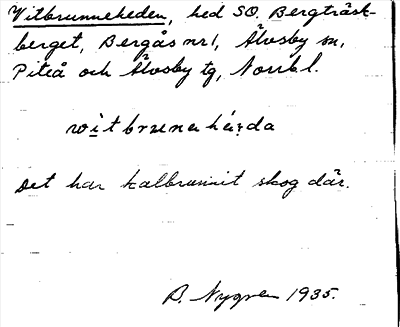 Vitbrunneheden, hed SO. Bergträsk-
berget, Bergås nr 1, Älvsby sn,
Piteå och Älvsby tg, Norrb l.
Det har kalbrunnit skog där.
B. Nygren 1935.